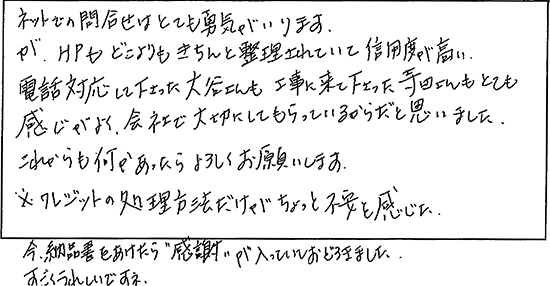 ネットでの問合せはとても勇気がいります.
が、HPも どこよりも きちんと整理されていて 信用度が高い.
電話対応して下さった 大谷さんも 工事に来て下さった 寺田さんも とても
感じがよく、会社で 大切にしてもらっているからだと思いました.
これからも 何かあったら よろしくお願いします.
※ クレジットの処理方法だけが ちょっと 不安と感じた.
今、納品書をあけたら "感謝" が 入っていておどろきました.
すごくうれしいですネ.